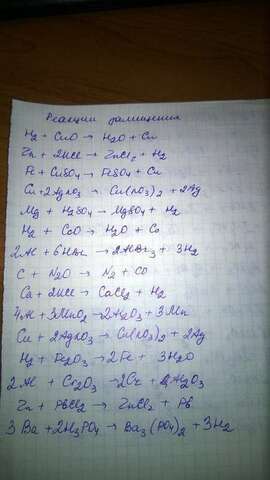 Реакции замещения
H₂ + CuO → H₂O + Cu
Zn + 2HCl → ZnCl₂ + H₂
Fe + CuSO₄ → FeSO₄ + Cu
Cu + 2AgNO₃ → Cu(NO₃)₂ + 2Ag
Mg + H₂SO₄ → MgSO₄ + H₂
H₂ + CoO → H₂O + Co
2Al + 6HBr → 2AlBr₃ + 3H₂
C + N₂O → N₂ + CO
Ca + 2HCl → CaCl₂ + H₂
4Al + 3MnO₂ → 2Al₂O₃ + 3Mn
Cu + 2AgNO₃ → Cu(NO₃)₂ + 2Ag
H₂ + Fe₂O₃ → 2Fe + 3H₂O
2Al + Cr₂O₃ → 2Cr + Al₂O₃
Zn + PbCl₂ → ZnCl₂ + Pb
3Ba + 2H₃PO₄ → Ba₃(PO₄)₂ + 3H₂